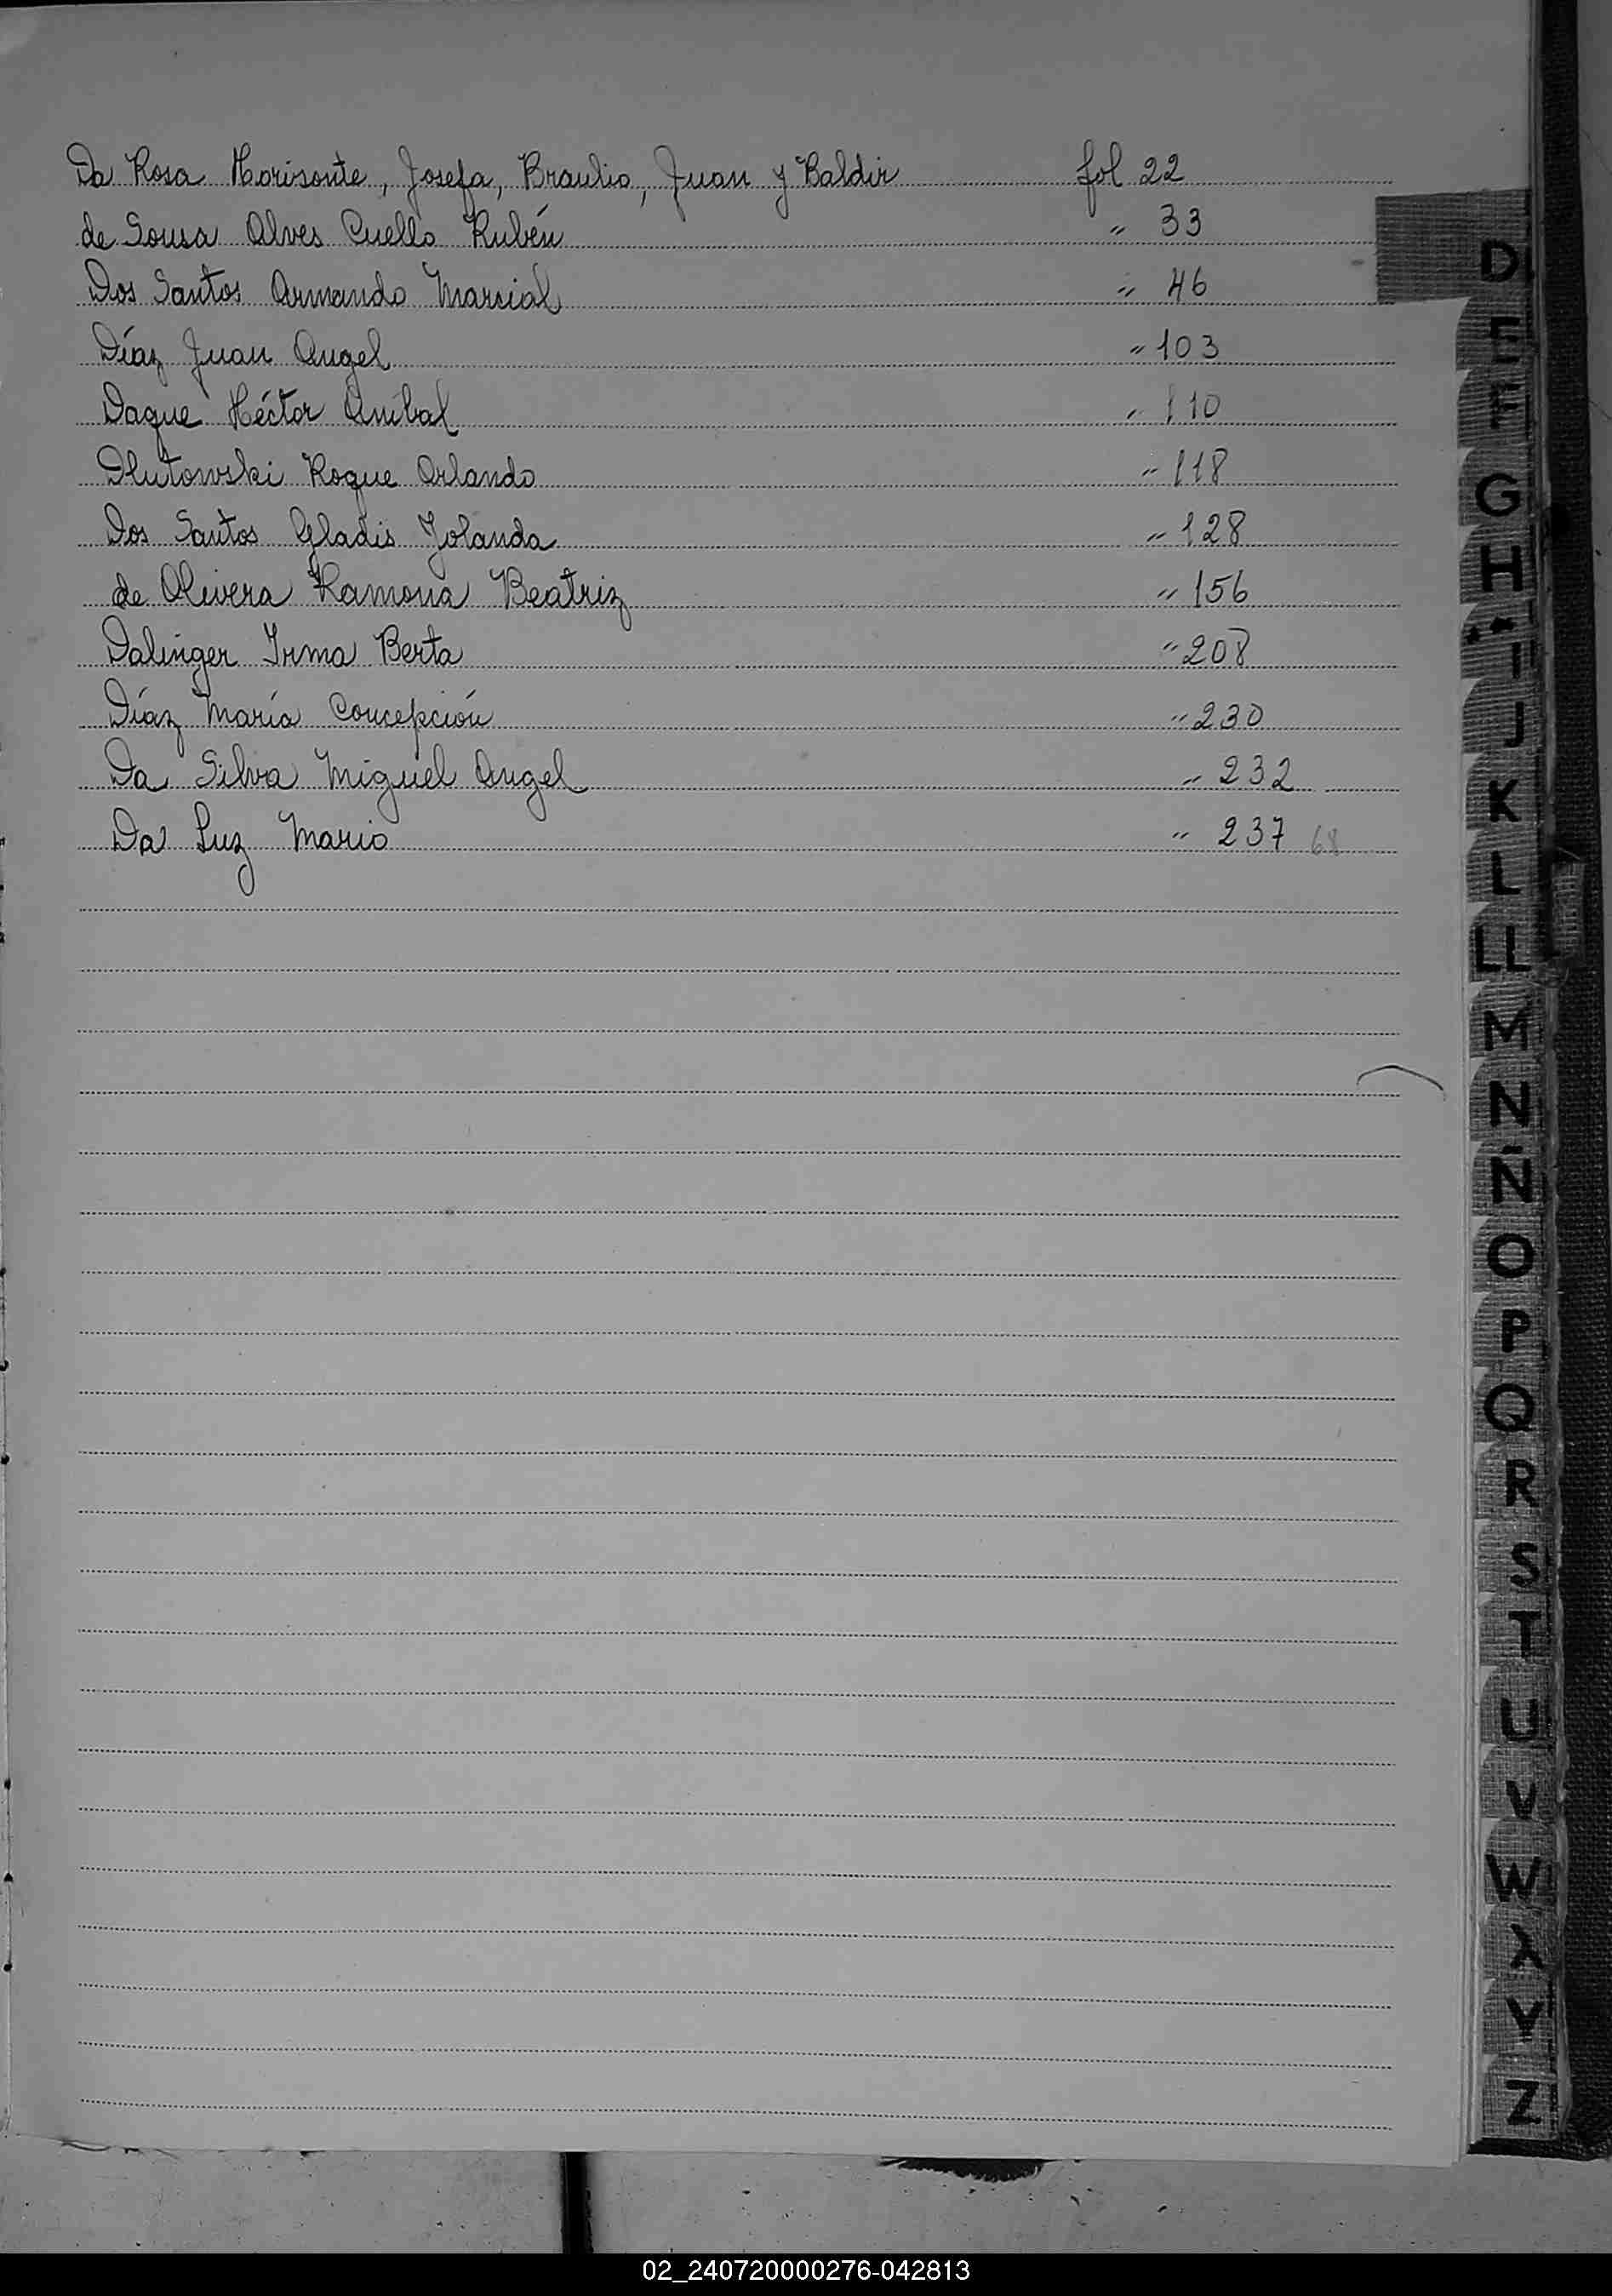 Da Rosa Horisonte, Josefa, Braulio, Juan y Baldir fol 22
de Sousa Alves Cuello Rubén " 33
Dos Santos Armando Marcial " 46
Díaz Juan Angel " 103
Daque Héctor Anibal " 110
Dlutowski Roque Orlando " 118
Dos Santos Gladis Yolanda " 128
de Olivera Ramona Beatriz " 156
Dalinger Irma Berta " 208
Díaz María Concepción " 230
Da Silva Miguel Angel " 232
Da Luz Mario " 237 68
D
E
F
G
H
I
J
K
L
LL
M
N
Ñ
O
P
Q
R
S
T
U
V
W
X
Y
Z
02_240720000276-042813